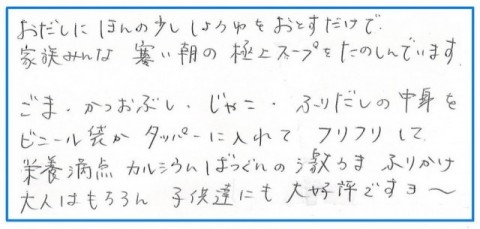 おだしに ほんの少し しょうゆを おとすだけで.
家族みんな 寒い朝の 極上スープを たのしんでいます.
ごま・かつおぶし・じゃこ・ふりだしの中身を
ビニール袋か タッパーに入れて フリフリして
栄養満点 カルシウムばつぐんの 激うま ふりかけ
大人はもちろん 子供達にも 大好評ですヨ〜